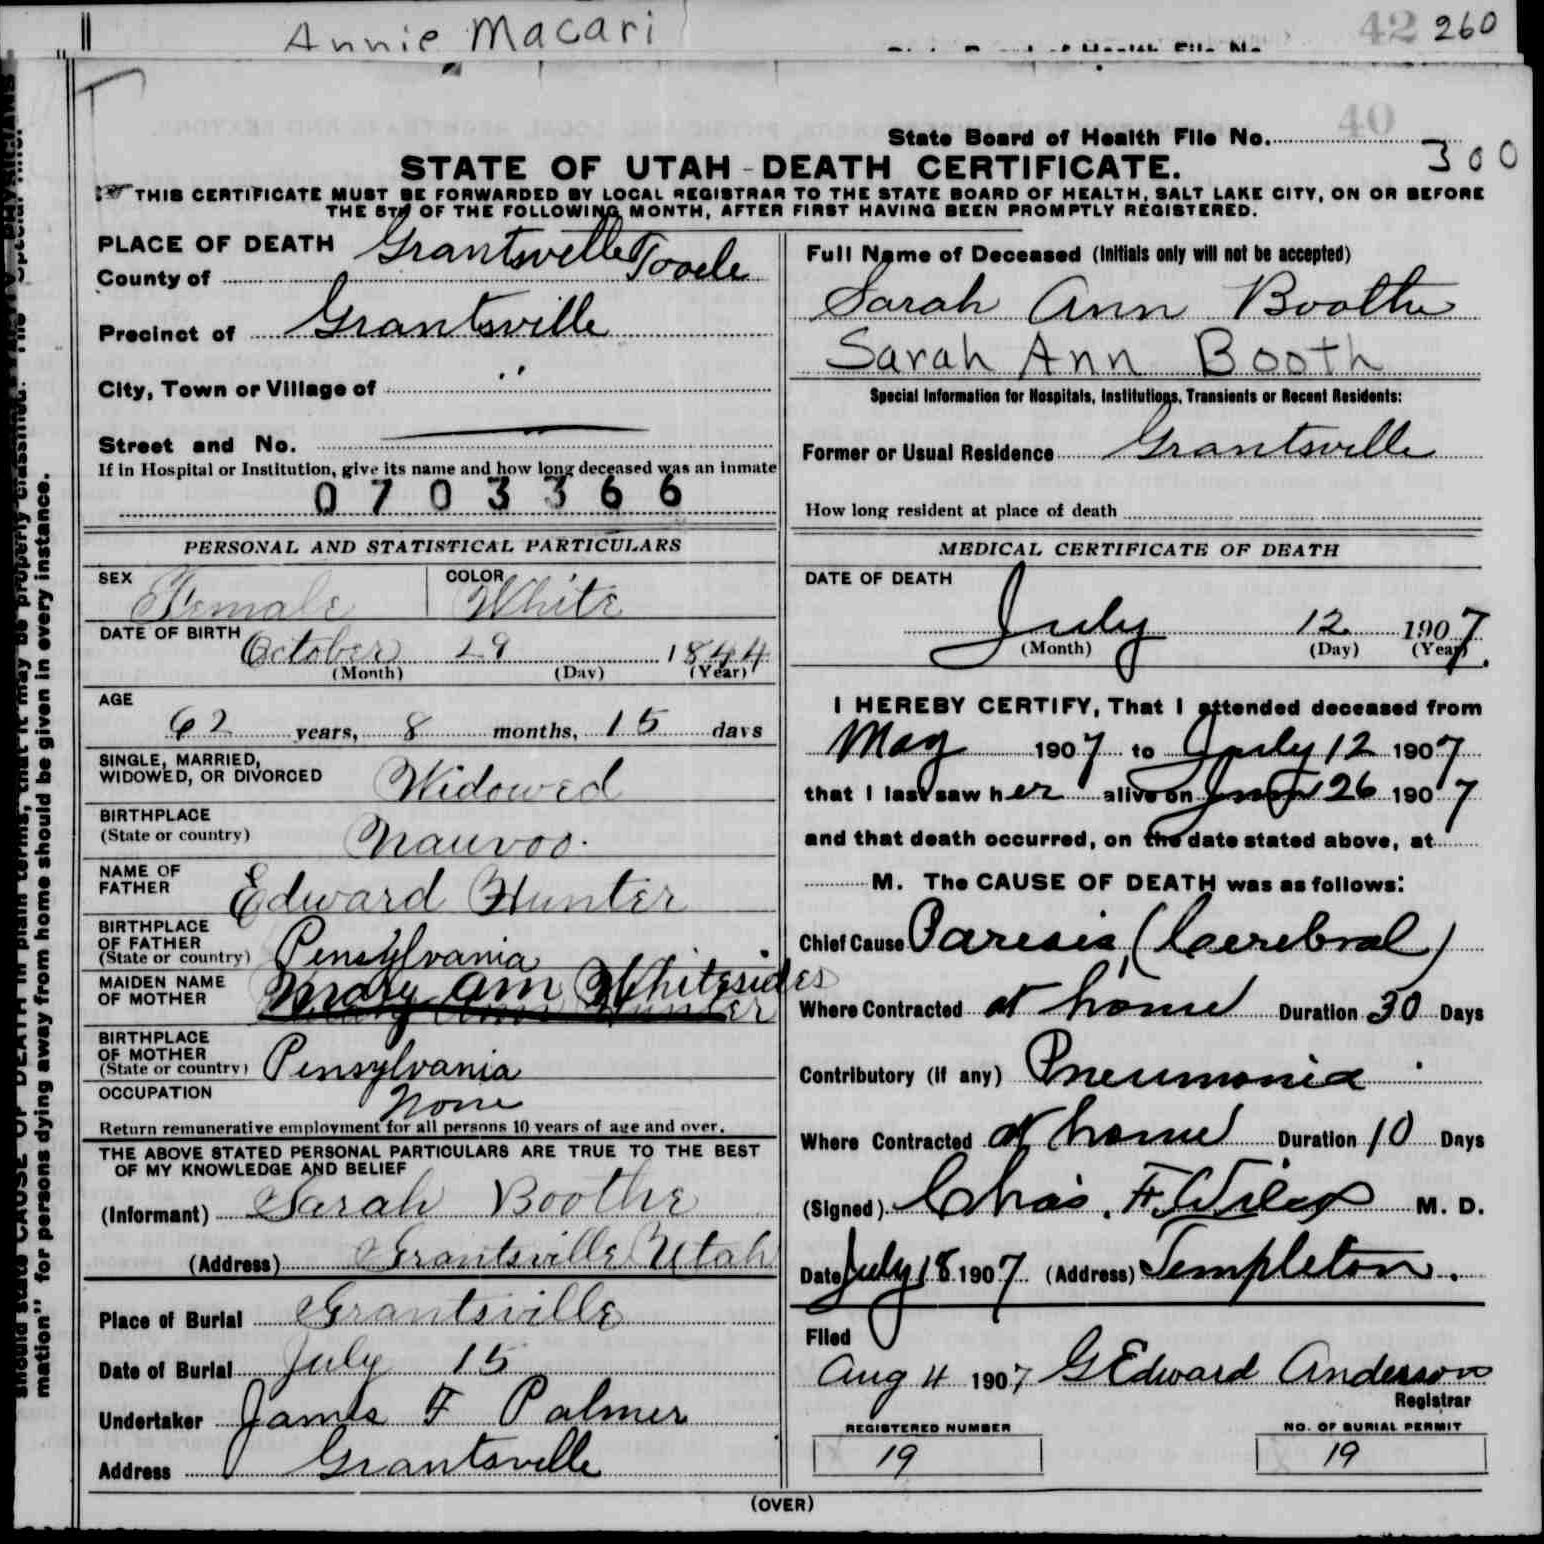 Annie Macari
42 260
State Board of Health File No. 300
40
STATE OF UTAH - DEATH CERTIFICATE.
THIS CERTIFICATE MUST BE FORWARDED BY LOCAL REGISTRAR TO THE STATE BOARD OF HEALTH, SALT LAKE CITY, ON OR BEFORE
THE 5TH OF THE FOLLOWING MONTH, AFTER FIRST HAVING BEEN PROMPTLY REGISTERED.
PLACE OF DEATH Grantsville
County of Tooele
Precinct of Grantsville
City, Town or Village of "
Street and No. —
If in Hospital or Institution, give its name and how long deceased was an inmate
0703366
PERSONAL AND STATISTICAL PARTICULARS
SEX Female COLOR White
DATE OF BIRTH October 29 1844
(Month) (Day) (Year)
AGE
62 years, 8 months, 15 days
SINGLE, MARRIED,
WIDOWED, OR DIVORCED Widowed
BIRTHPLACE
(State or country) Nauvoo.
NAME OF
FATHER Edward Hunter
BIRTHPLACE
OF FATHER
(State or country) Pensylvania
MAIDEN NAME
OF MOTHER Mary Ann Whitesides
Mary Ann Hunter
BIRTHPLACE
OF MOTHER
(State or country) Pensylvania
OCCUPATION None
Return remunerative employment for all persons 10 years of age and over.
THE ABOVE STATED PERSONAL PARTICULARS ARE TRUE TO THE BEST
OF MY KNOWLEDGE AND BELIEF
(Informant) Sarah Boothe
(Address) Grantsville Utah
Place of Burial Grantsville
Date of Burial July 15
Undertaker James F Palmer
Address Grantsville
Full Name of Deceased (Initials only will not be accepted)
Sarah Ann Boothe
Sarah Ann Booth
Special Information for Hospitals, Institutions, Transients or Recent Residents:
Former or Usual Residence Grantsville
How long resident at place of death
MEDICAL CERTIFICATE OF DEATH
DATE OF DEATH
July 12 1907.
(Month) (Day) (Year)
I HEREBY CERTIFY, That I attended deceased from
May 1907 to July 12 1907
that I last saw her alive on June 26 1907
and that death occurred, on the date stated above, at
M. The CAUSE OF DEATH was as follows:
Chief Cause Paresis, (Cerebral)
Where Contracted at home Duration 30 Days
Contributory (if any) Pneumonia
Where Contracted at home Duration 10 Days
(Signed) Chas. F. Wilcox M. D.
Date July 18 1907 (Address) Templeton.
Filed
Aug 4 1907 G Edward Anderson
Registrar
REGISTERED NUMBER
19
NO. OF BURIAL PERMIT
19
(OVER)
should state CAUSE OF DEATH in plain terms, that it may be properly classified. The "Special Infor-
mation" for persons dying away from home should be given in every instance.